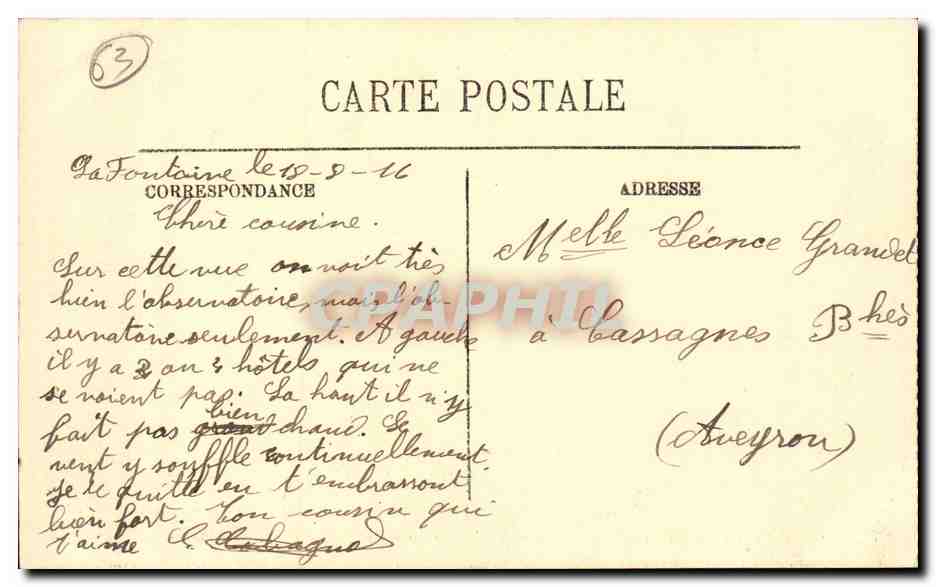 63
CARTE POSTALE
La Fontaine le 18-8-16
CORRESPONDANCE
ADRESSE
Chère cousine.
Sur cette vue on voit très
bien l'observatoire, mais l'ob-
servatoire seulement. A gauche
il y a 2 ou 3 hôtels qui ne
se voient pas. La haut il n'y
fait pas bien chaud. Le
vent y souffle continuellement.
Je te quitte en t'embrassant
bien fort. Ton cousin qui
t'aime
Melle Léonce Grandet
à Cassagnes Bhès
(Aveyron)
CPAPHIL